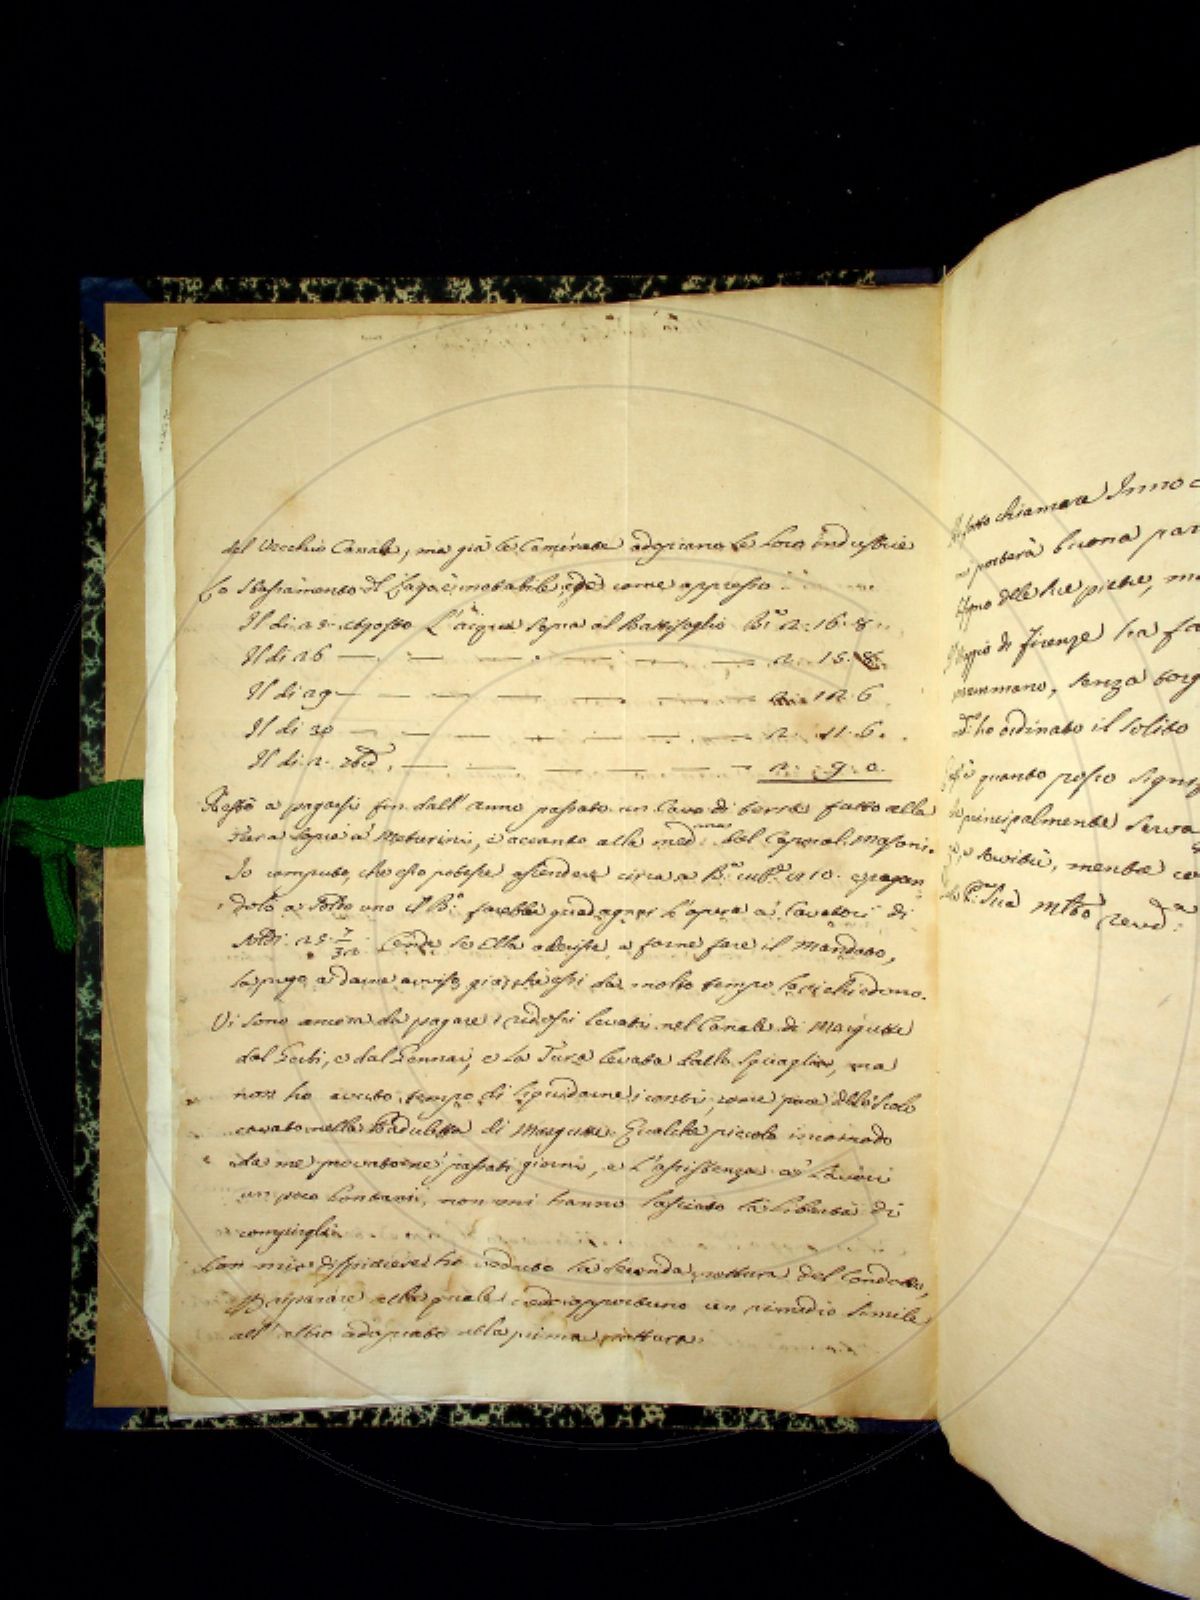 del Vecchio Canale, ma già le Caminate adoprano le loro industrie
Lo sbassamento del Lago è notabile, ed è come appresso
Il dì 25. Agosto L'acqua sopra al Battisoglio Bª 2. 16. 8
Il dì 26 2. 15. 8.
Il dì 29 12. 6
Il dì 30 2. 11. 6.
Il dì 2. 7bre. 2. 9. 0.
Resta a pagarsi fin dall'anno passato un Cavo di terra fatto alla
Tura sopra a' Maturini, e accanto alla med.ma dal Caporal Masoni.
Io computo, che esso potesse ascendere circa a Bª cubª 210. e pagan
dolo a soldo uno il Bº farebbe guadagnar l'opera a' Cavatori di
soldi 25 7/32. Onde se Ella adevisse a farne fare il Mandato,
la prego a darne avviso, giacchè essi da molto tempo la richiedono.
Vi sono ancora da pagare i ridossi levati nel Canale di Masgutte
dal Geti, e dal Gennai, e la Tura levata dallo Spiaglia, ma
non ho avuto tempo di liquidarne i conti, come pure dello scolo
cavato nella Paduletta di Masgutte. Qualche piccolo incomodo
da me provato ne' passati giorni, e l'assistenza a' Lavori
un poco lontani, non mi hanno lasciato la libertà di
compirgli.
Con mio dispiacere ho veduto la seconda rottura del Condotto,
p riparare alla quale credo opportuno un rimedio simile
all'altro adoprato alla prima rottura.
fatto chiamare Inno
porterà buona par
delle sue pietre, m
di Firenze sia fa
mano, senza
ho ordinato il solito
quanto posso
principalmente serva
servitù, mentre co
Sua Mtto Revda